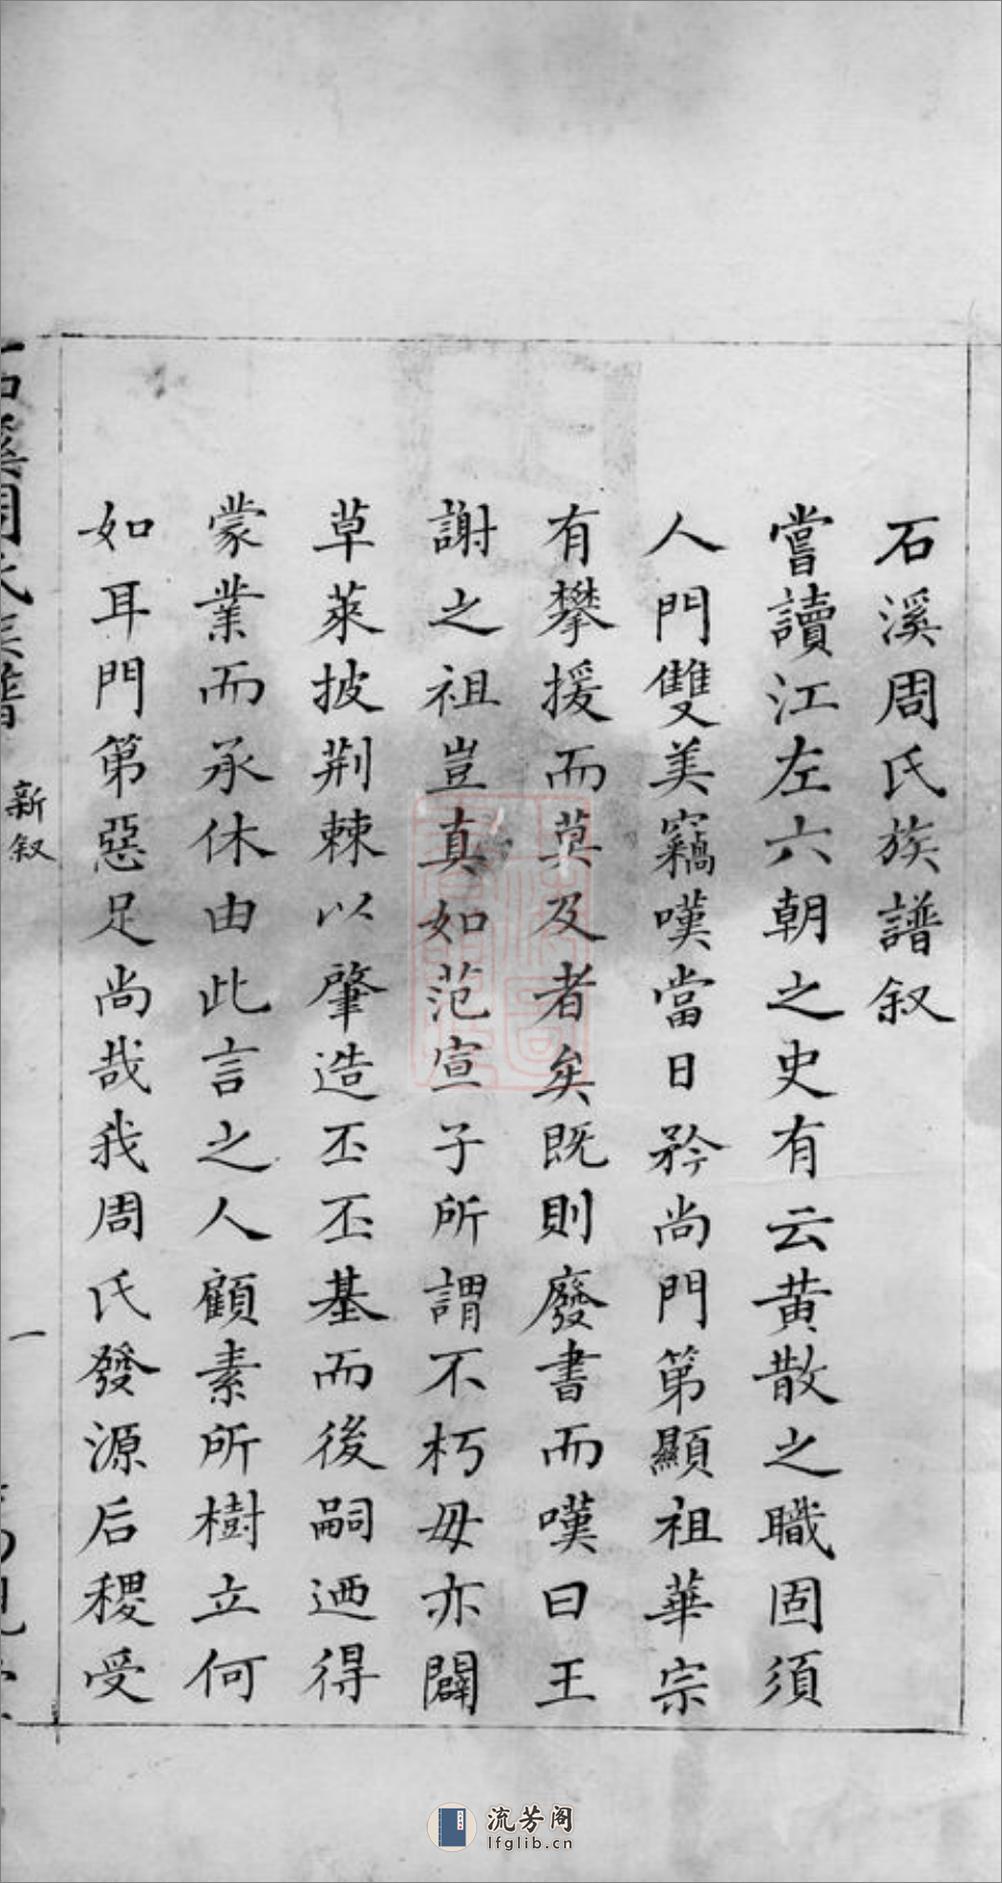 石溪周氏族譜叙
嘗讀江左六朝之史有云黄散之職固須
人門雙美竊嘆當日矜尚門第顯祖華宗
有攀援而莫及者矣既則廢書而嘆曰王
謝之祖豈真如范宣子所謂不朽毋亦闢
草萊披荆棘以肇造丕丕基而後嗣迺得
蒙業而承休由此言之人顧素所樹立何
如耳門第惡足尚哉我周氏發源后稷受
石溪周氏族譜
新叙
一
流芳阁
lfglib.cn